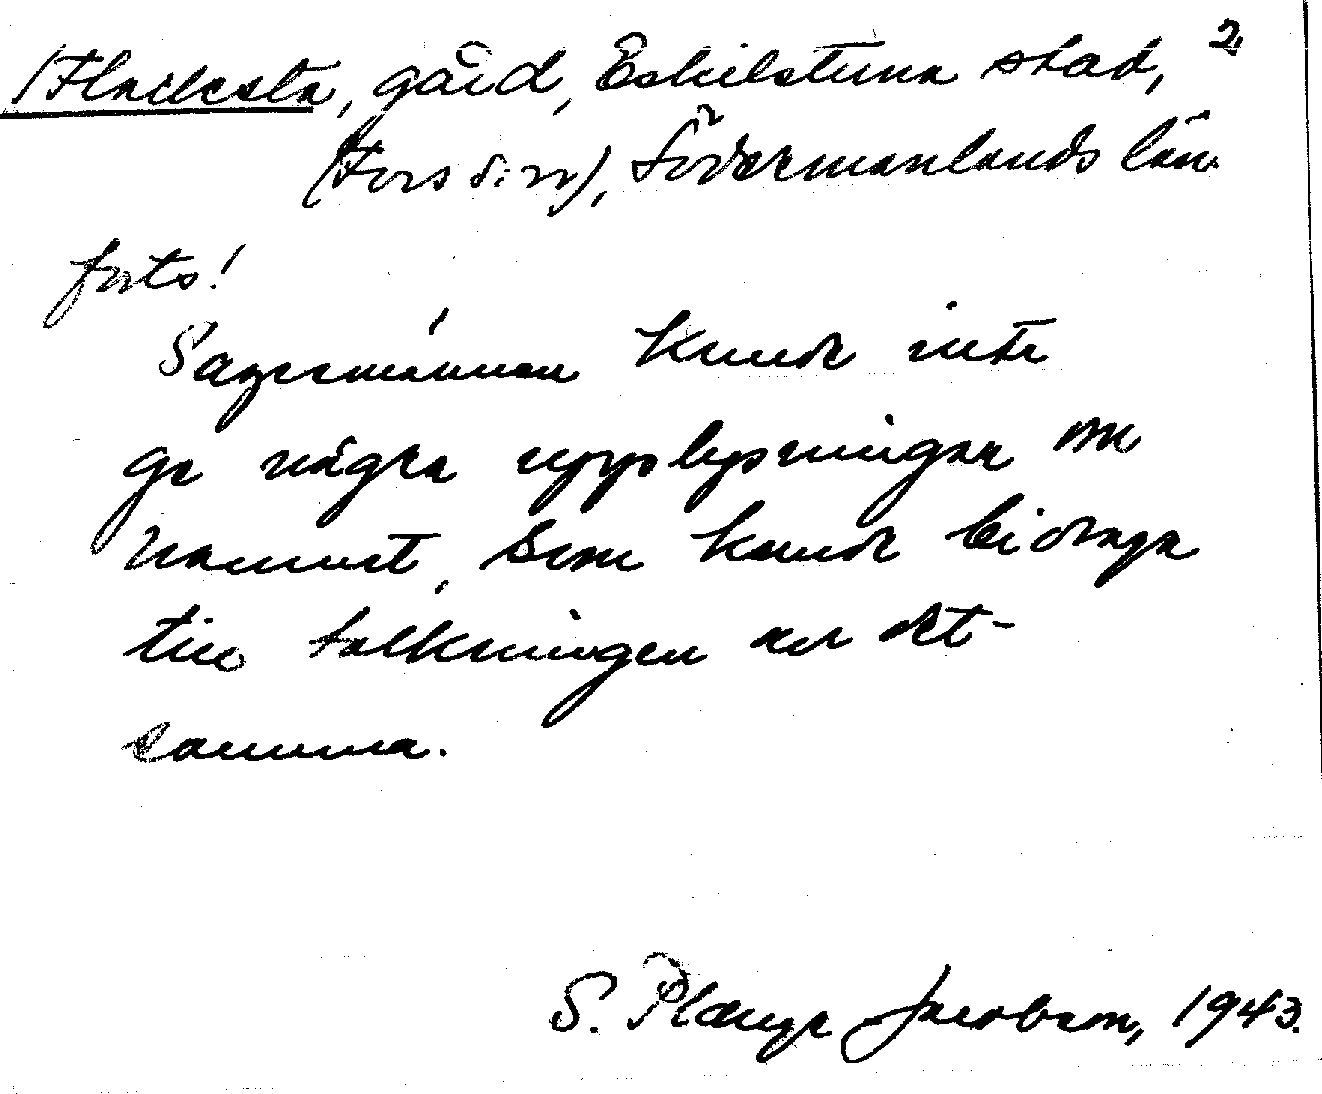 Hacksta, gård, Eskilstuna stad, 2,
(Fors s:n), Södermanlands län.
forts!
Sagesmannen kunde inte
ge några upplysningar om
namnet, som kunde bidraga
till tolkningen av det-
samma.
S. Plænge Jacobson, 1943.